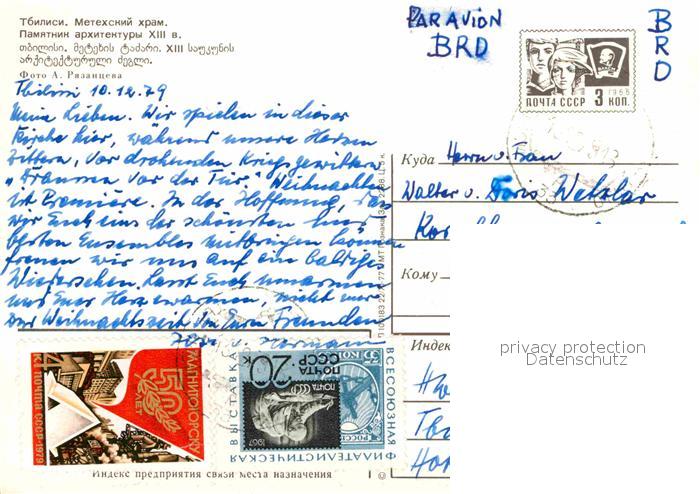 Тбилиси. Метехский храм.
Памятник архитектуры XIII в.
თბილისი. მეტეხის ტაძარი. XIII საუკუნის
არქიტექტურული ძეგლი.
Фото А. Рязанцева
PAR AVION
BRD
BRD
ПОЧТА СССР 3 КОП.
1966
Tbilissi 10.12.79
Meine Lieben. Wir spielen in dieser
Kirche hier, während unsere Herzen
zittern, vor drohenden Kriegsgewittern
"Draussen vor der Tür" Weihnachten
ist Premiere. In der Hoffnung, dass
wir Euch eins der schönsten und
besten Ensembles mitbringen können
freuen wir uns auf ein baldiges
Wiedersehen. Lasst Euch umarmen
und Euer Herz erwarmen, nicht nur
zur Weihnachtszeit von Euren Freunden
u. Hermann
Куда Herrn u. Frau
Walter u. Doris Wetzlar
Кому
Индекс
privacy protection
Datenschutz
МАГНИТОГОРСКУ
50
ЛЕТ
4К ПОЧТА СССР·1979
ВСЕСОЮЗНАЯ
ФИЛАТЕЛИСТИЧЕСКАЯ
ВЫСТАВКА
ПОЧТА
СССР
20К
1967
Индекс предприятия связи места назначения